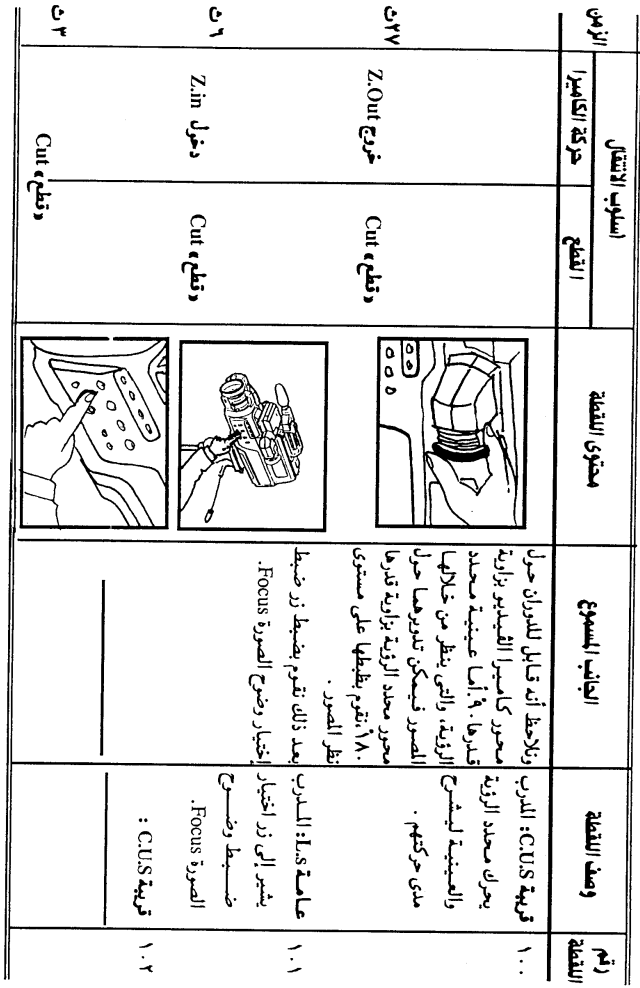 رقم اللقطة
وصف اللقطة
الجانب المسموع
محتوى اللقطة
اسلوب الانتقال
القطع
حركة الكاميرا
الزمن
١٠٠
قريبة C.U.S: المدرب
يحرك محدد الرؤية
والعينية ليشرح
مدى حركتهم .
ونلاحظ أنه قابل للدوران حول
محور كاميرا الڤيديو بزاوية
قدرها ٩٠ْ.أما عينية محدد
الرؤية، والتى ينظر من خلالها
المصور فيمكن تدويرهما حول
محور محدد الرؤية بزاوية قدرها
١٨٠ْ،نقوم بظبطها على مستوى
نظر المصور .
«قطع» Cut
خروج Z.Out
٢٧ث
١٠١
عامة L.s: المدرب
يشير إلى زر اختيار
ضبط وضوح
الصورة Focus.
بعد ذلك نقوم بضبط زر ضبط
إختيار وضوح الصورة Focus.
«قطع» Cut
دخول Z.in
٦ ث
١٠٢
قريبة C.U.S :
«قطع» Cut
٣ ث